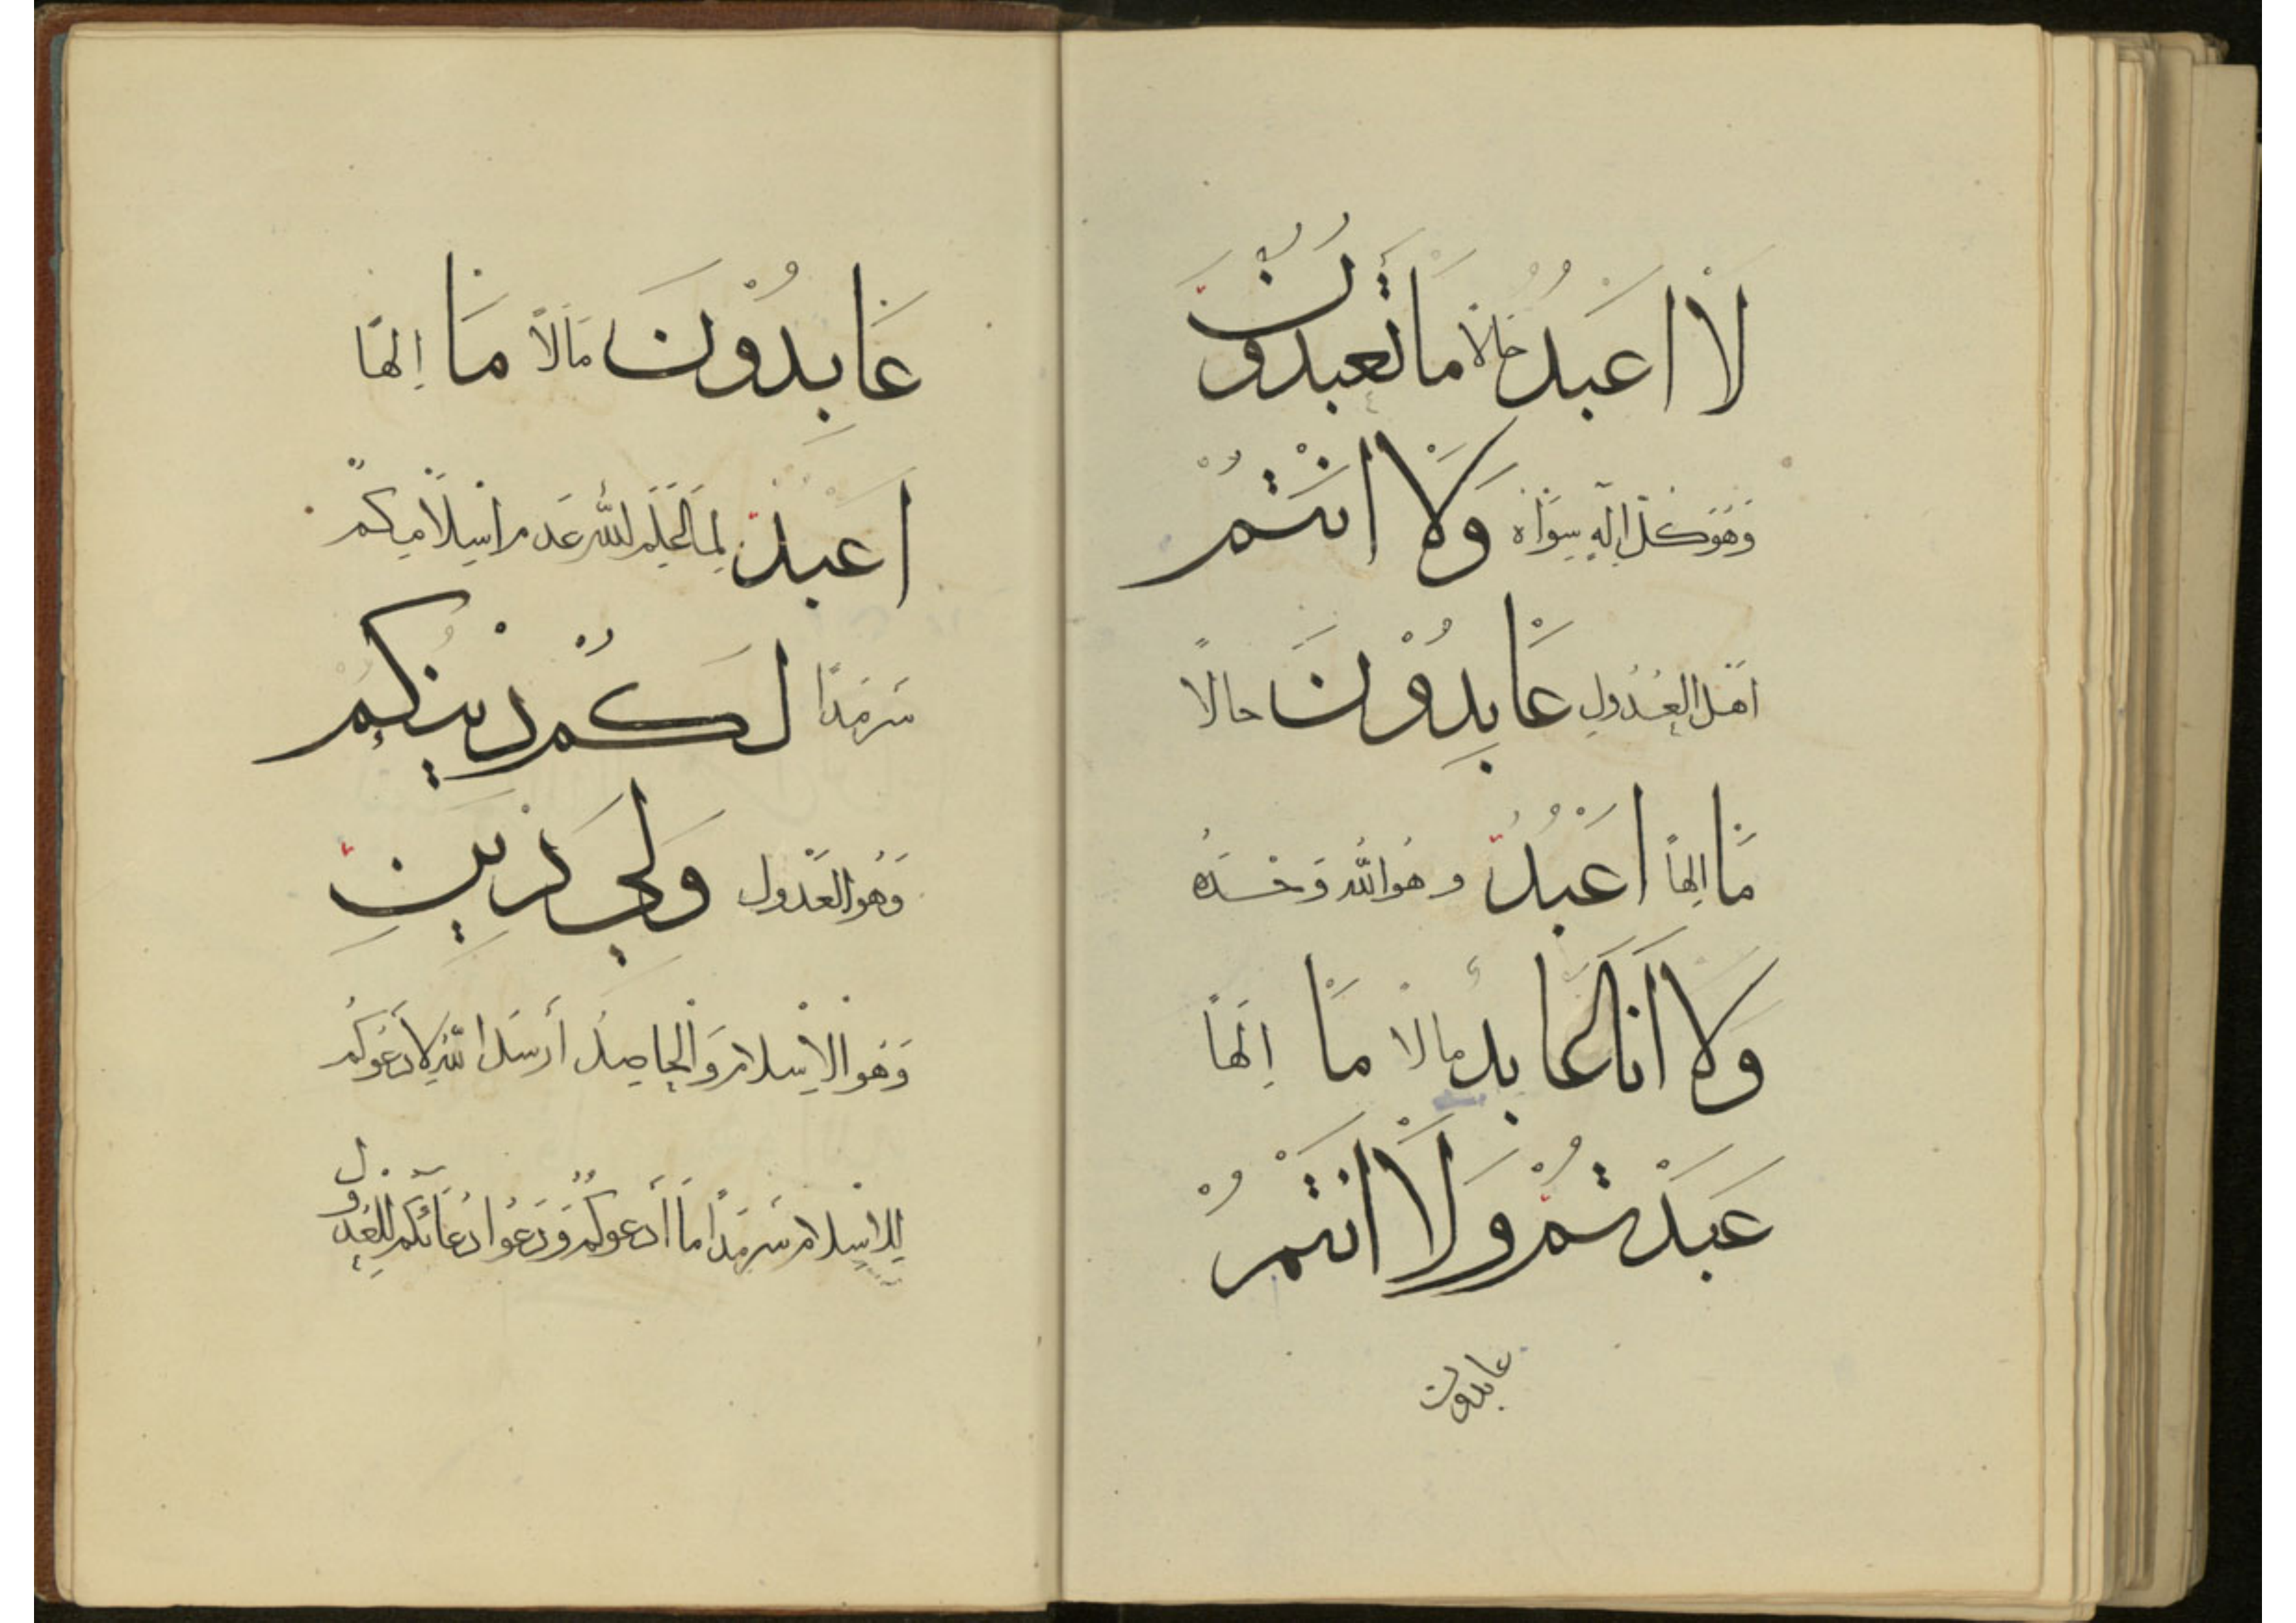 لَا اَعْبُدُ حَالًا مَا تَعْبُدُوْنَ
وَهُوَ كُلُّ اِلٰهٍ سِوَاهُ وَلَا اَنْتُمْ
اَهْلَ الْعُدُولِ عَابِدُوْنَ حَالًا
مَا اِلٰهًا اَعْبُدُ وَهُوَ اللّٰهُ وَحْدَهُ
وَلَا اَنَا عَابِدٌ مَالًا مَا اِلٰهًا
عَبَدْتُمْ وَلَا اَنْتُمْ
عابدون
عَابِدُوْنَ مَالًا مَا اِلٰهًا
اَعْبُدُ لِمَا عَلِمَ اللّٰهُ عَدَمَ اِسْلَامِكُمْ
سَرْمَدًا لَكُمْ دِيْنُكُمْ
وَهُوَ الْعُدُول وَلِيَ دِيْنِ
وَهُوَ الْاِسْلَامُ وَالْحَاصِلُ أَرْسَلَ اللّٰهُ لِأَدْعُوَكُمْ
لِلْاِسْلَامِ سَرْمَدًا مَا أَدْعُوكُمْ وَدَعُوا دُعَائَكُمْ لِلْعُدُولِ